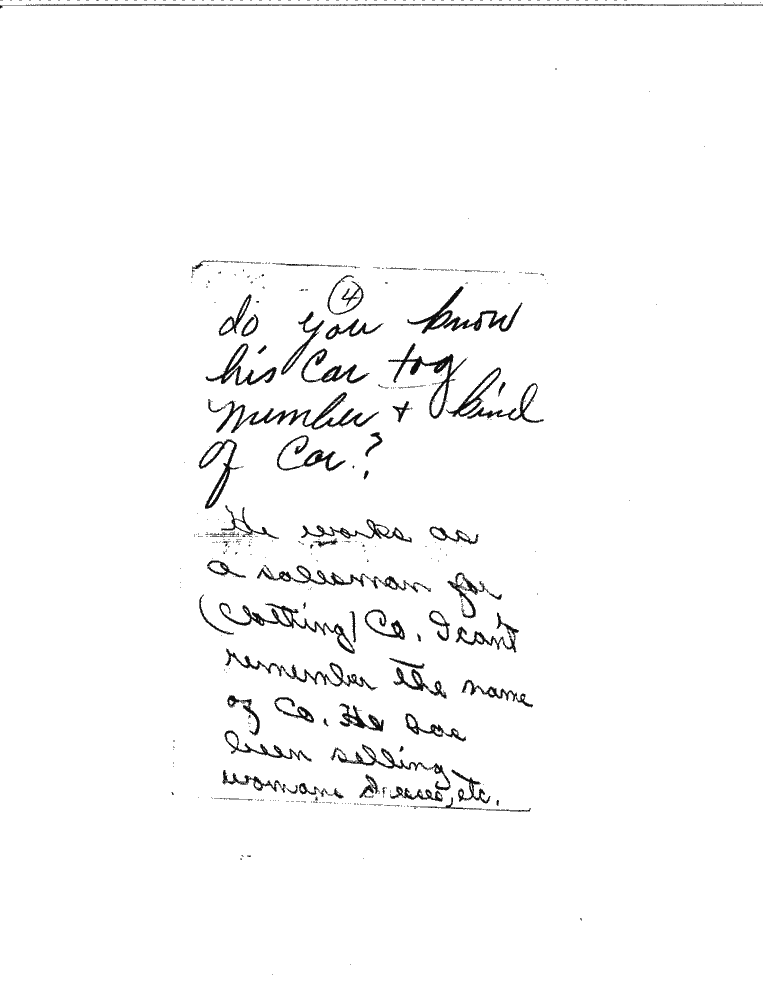 4
do you know
his Car tag
number + kind
of Car?
He works as
a salesman for
(Clothing) Co. I can't
remember the name
of Co. He has
been selling
womans dresses, etc.